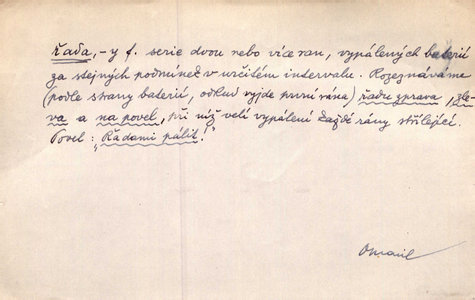 řada, -y f. serie dvou nebo více ran, vypálených baterií
za stejných podmínek v určitém intervalu. Rozeznáváme
(podle strany baterií, odkud vyjde první rána) řadu zprava, zle-
va a na povel, při níž velí vypálení každé rány střílející.
Povel: „Řadami pálit!"